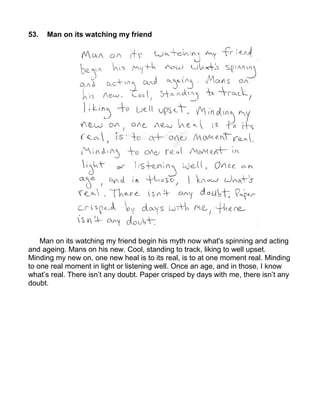 53. Man on its watching my friend
Man on its watching my friend
begin his myth now what's spinning
and acting and ageing. Mans on
his new. Cool, standing to track,
liking to well upset. Minding my
new on, one new heal is to its
real, is to at one moment real.
Minding to one real moment in
light or listening well. Once an
age, and in those, I know what's
real. There isn't any doubt. Paper
crisped by days with me, there
isn't any doubt.
Man on its watching my friend begin his myth now what's spinning and acting
and ageing. Mans on his new. Cool, standing to track, liking to well upset.
Minding my new on, one new heal is to its real, is to at one moment real. Minding
to one real moment in light or listening well. Once an age, and in those, I know
what's real. There isn't any doubt. Paper crisped by days with me, there isn't any
doubt.